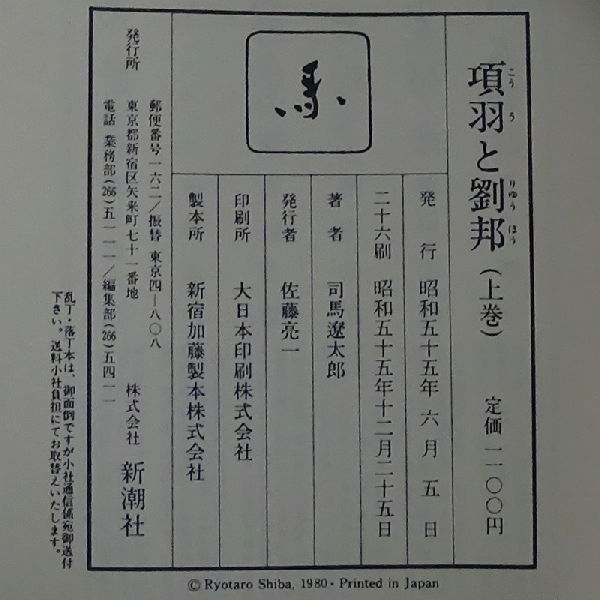 項羽と劉邦(上巻) 定価一一〇〇円
こうう
りゅうほう
発行 昭和五十五年六月五日
二十六刷 昭和五十五年十二月二十五日
著者 司馬遼太郎
発行者 佐藤亮一
印刷所 大日本印刷株式会社
製本所 新宿加藤製本株式会社
発行所
郵便番号一六二/振替 東京四―八〇八
東京都新宿区矢来町七十一番地
電話 業務部(266)五一一一/編集部(266)五四一一
株式会社 新潮社
乱丁・落丁本は、御面倒ですが小社通信係宛御送付
下さい。送料小社負担にてお取替えいたします。
© Ryotaro Shiba, 1980・Printed in Japan